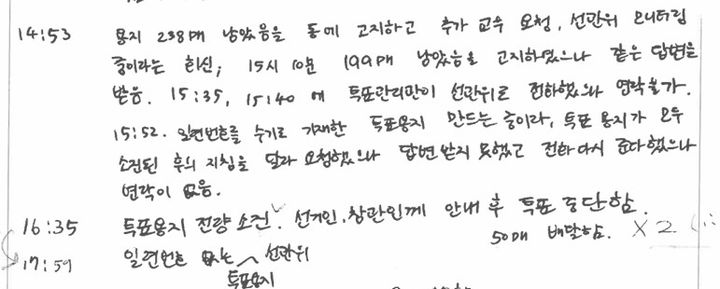 14:53 용지 238매 남았음을 동에 고지하고 추가 교부 요청, 선관위 모니터링
중이라는 회신; 15시 10분 199매 남았음을 고지하였으나 같은 답변을
받음. 15:35, 15:40 에 투표관리관이 선관위로 전화했으나 연락불가.
15:52. 일련번호를 수기로 기재한 투표용지 만드는 중이라, 투표 용지가 모두
소진된 후의 지침을 달라 요청했으나 답변 받지 못했고 전화 다시 준다했으나
연락이 없음.
16:35 투표용지 전량 소진. 선거인, 참관인께 안내 후 투표 중단함.
17:59 일련번호 없는 투표용지 선관위 50매 배달함. X 2